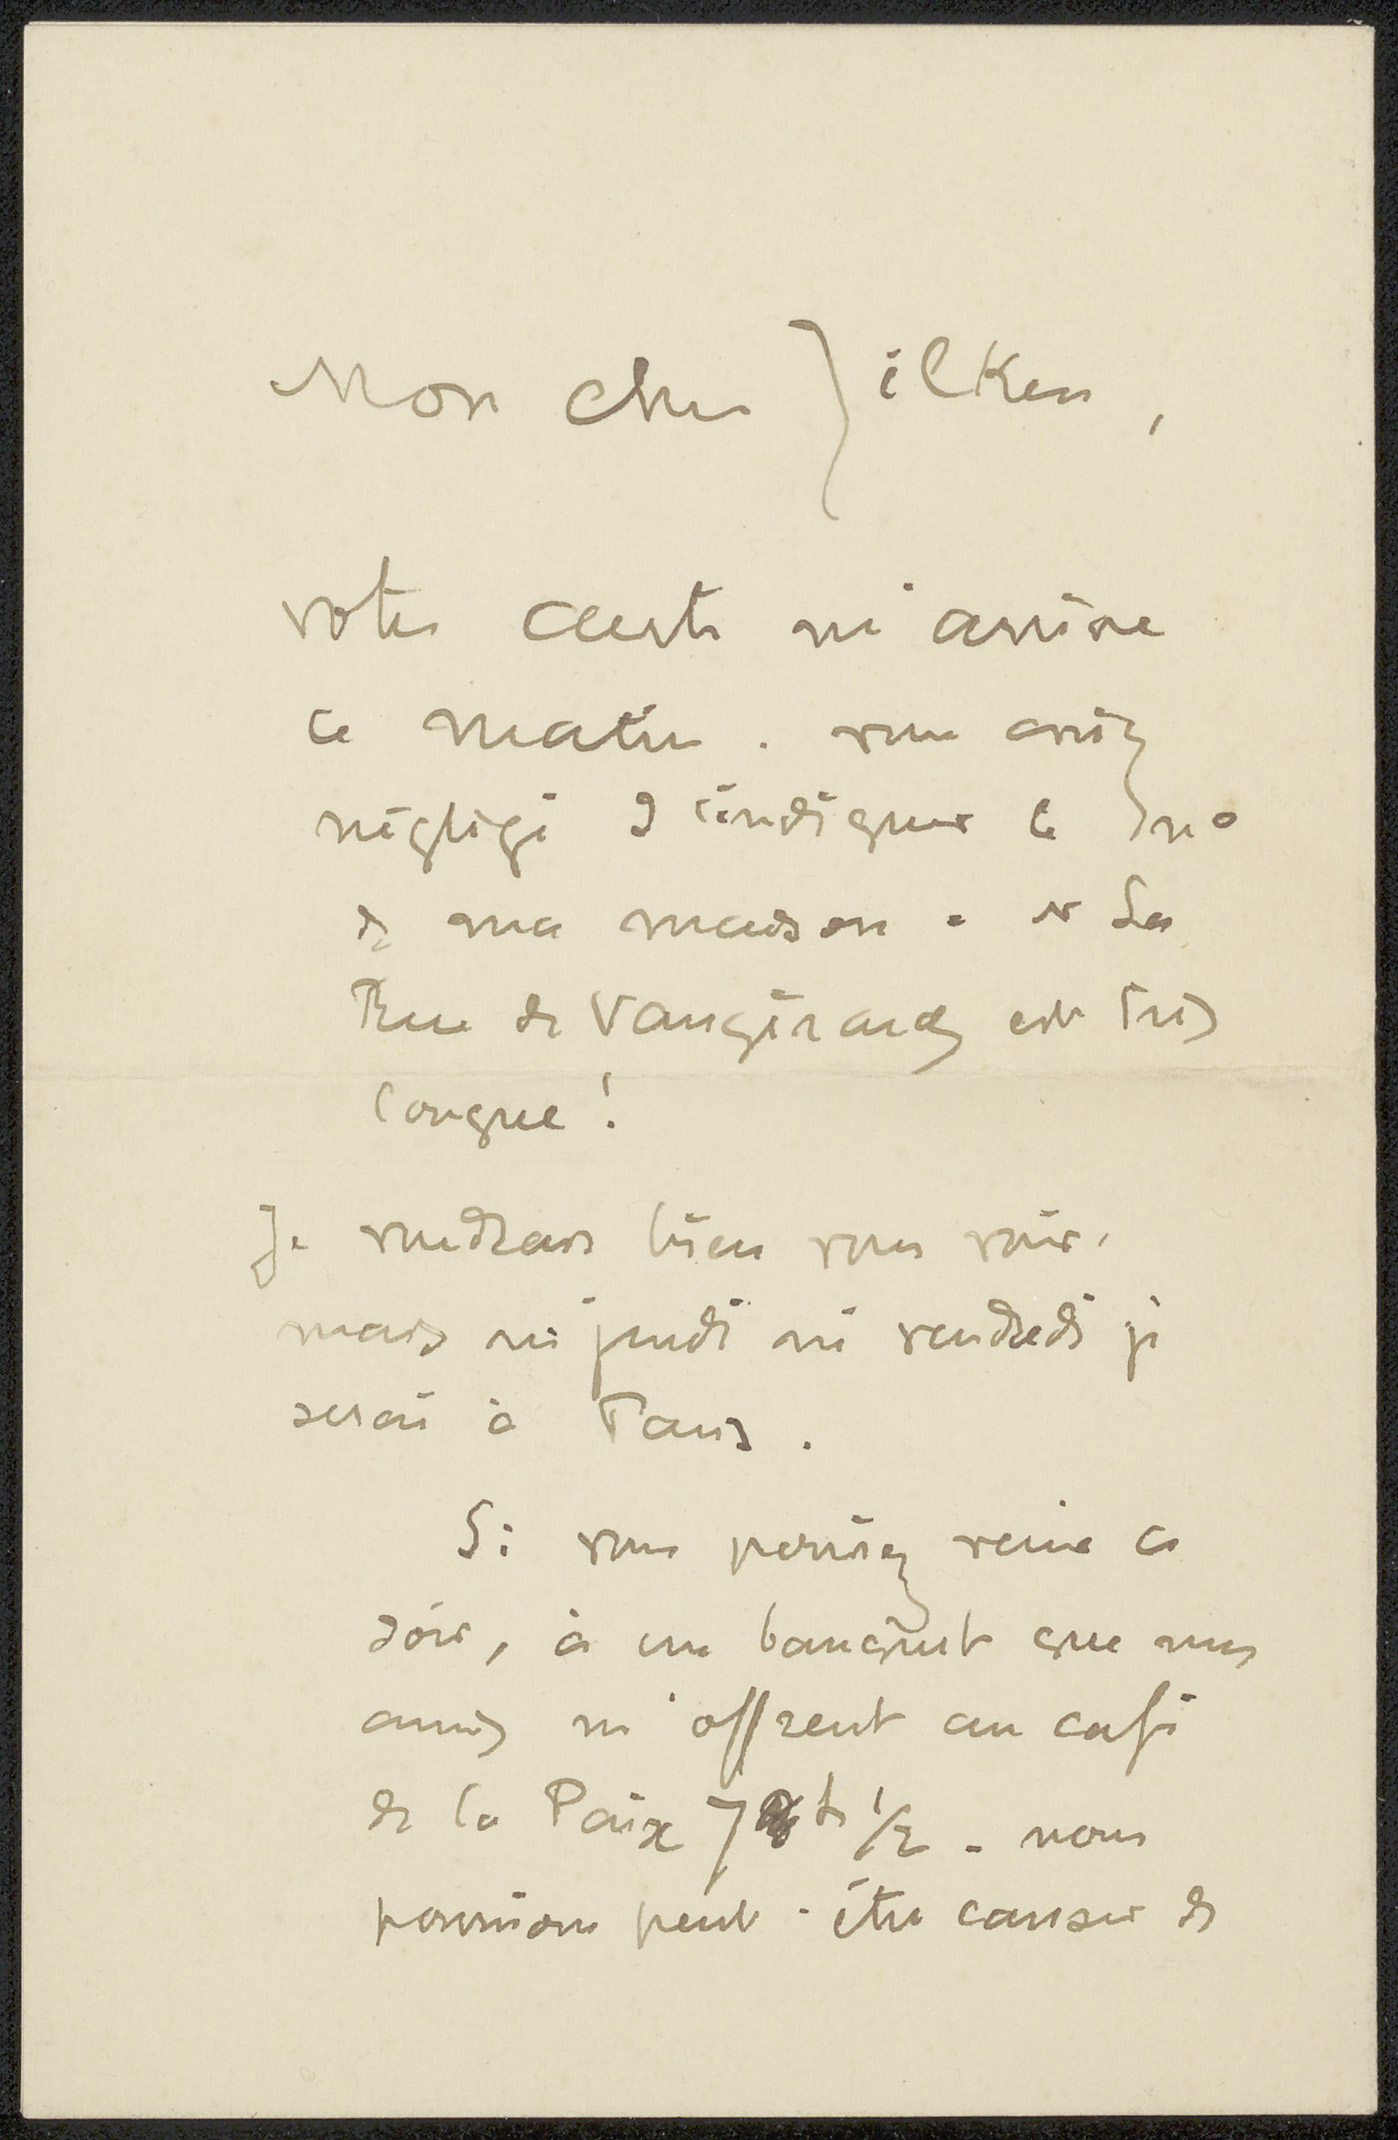 Mon cher Zilken,
votre carte m'arrive
ce matin. vous aviez
négligé d'indiquer le no
de ma maison. et La
Rue de Vaugirard est très
longue!
Je voudrais bien vous voir,
mais ni jeudi ni vendredi je
serai à Paris.
Si vous pouviez venir ce
soir, à un banquet que mes
amis m'offrent au café
de la Paix 7 h 1/2. nous
pourrions peut-être causer de